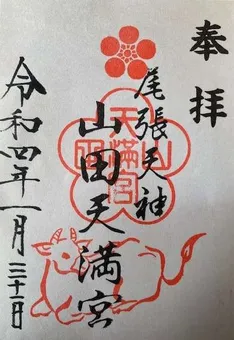 奉拝
尾張天神
山田天満宮
令和四年一月三十一日
山田
天満宮